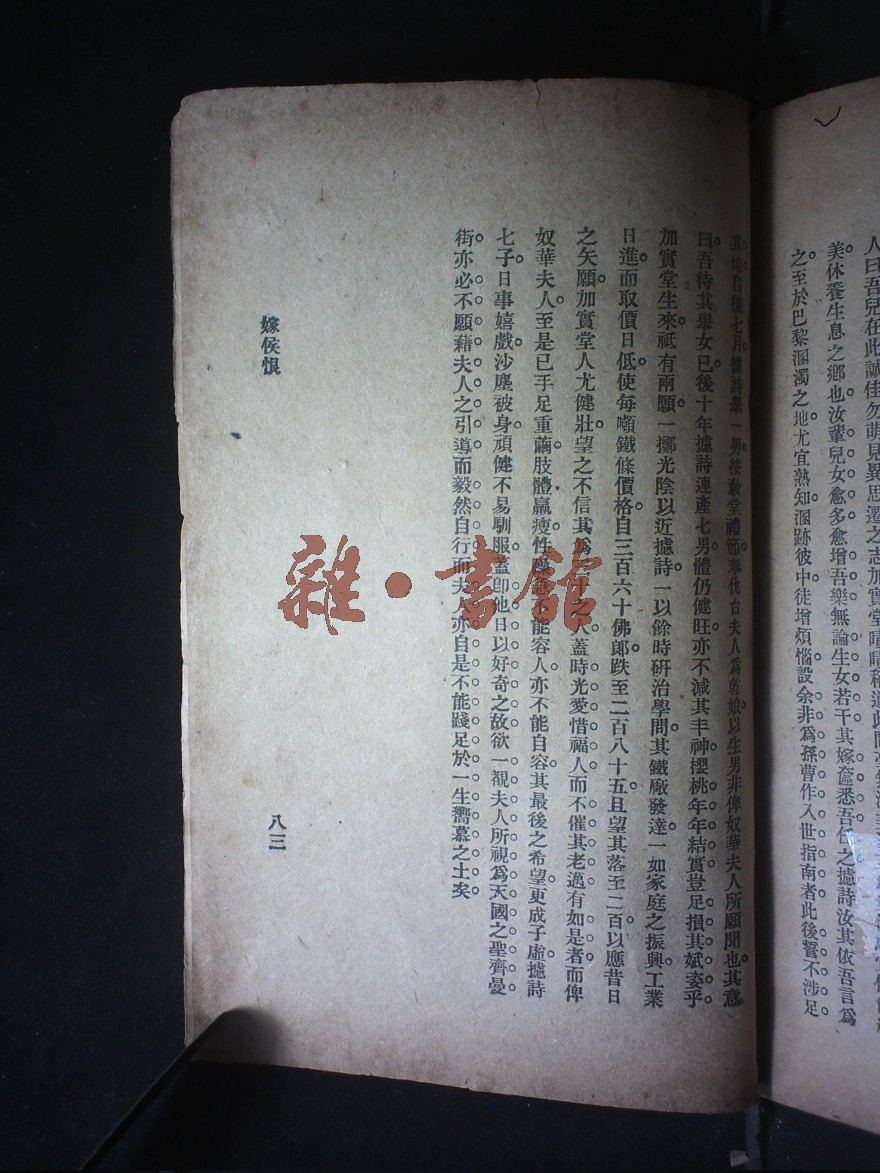 人曰吾兒在此誠佳勿萌見異思遷之志加實堂
美休養生息之鄉也汝輩兒女愈多愈增吾樂無論生女若干其嫁奩悉吾任之攄詩汝其依吾言爲
之至於巴黎溷濁之地尤宜熟知溷跡彼中徒增煩惱設余非爲孫曹作入世指南者此後誓不涉足
其地自後七月攄詩舉一男按敎堂禮節奉仇台夫人爲乾娘以生男非俾奴華夫人所願聞也其意
曰吾待其舉女已後十年攄詩連產七男體仍健旺亦不減其丰神櫻桃年年結實豈足損其斌姿乎
加實堂生來祇有兩願一擲光陰以近攄詩一以餘時研治學問其鐵廠發達一如家庭之振興工業
日進而取價日低使每噸鐵條價格自三百六十佛郎跌至二百八十五且望其落至二百以應昔日
之矢願加實堂人尤健壯望之不信其爲之人蓋時光愛惜福人而不催其老邁有如是者而俾
奴華夫人至是已手足重繭肢體羸瘦性不能容人亦不能自容其最後之希望更成子虛攄詩
七子日事嬉戲沙塵被身頑健不易馴服蓋卽他日以好奇之故欲一覩夫人所視爲天國之聖齊曼
街亦必不願藉夫人之引導而毅然自行而夫人亦自是不能踐足於一生嚮慕之土矣
嫁侯恨
八三
雜·書館